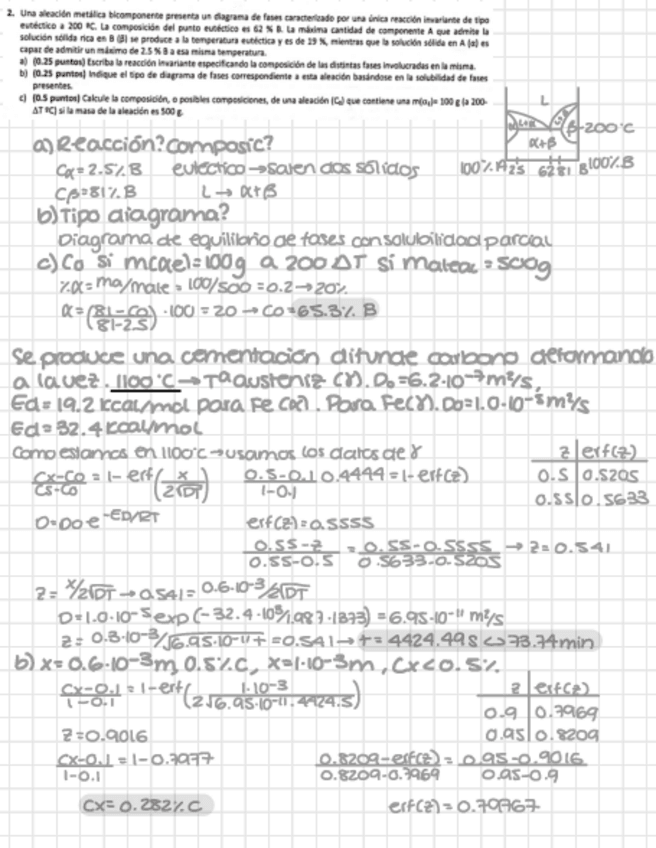 2. Una aleación metálica bicomponente presenta un diagrama de fases caracterizado por una única reacción invariante de tipo
eutéctico a 200 ºC. La composición del punto eutéctico es 62 % B. La máxima cantidad de componente A que admite la
solución sólida rica en B (β) se produce a la temperatura eutéctica y es de 19 %, mientras que la solución sólida en A (α) es
capaz de admitir un máximo de 2.5 % B a esa misma temperatura.
a) (0.25 puntos) Escriba la reacción invariante especificando la composición de las distintas fases involucradas en la misma.
b) (0.25 puntos) Indique el tipo de diagrama de fases correspondiente a esta aleación basándose en la solubilidad de fases
presentes.
c) (0.5 puntos) Calcule la composición, o posibles composiciones, de una aleación (C₀) que contiene una m(αₜ)= 100 g (a 200-
ΔT ºC) si la masa de la aleación es 500 g.
L
L+α
β
200°C
α+β
100% A 2.5 62 81 B 100% B
a) Reacción? Composic?
Cα = 2.5% B eutectico → salen dos sólidos
Cβ = 81% B L → α+β
b) Tipo diagrama?
Diagrama de equilibrio de fases con solubilidad parcial
c) Co si m(αe)=100g a 200 ΔT si maleac = 500g
%α = mα/male = 100/500 = 0.2 → 20%
α = (81-Co/81-2.5) · 100 = 20 → Co = 65.3% B
Se produce una cementación difunde carbono deformando
a la vez. 1100°C → Tª austeniz (γ). Do = 6.2·10⁻⁷ m²/s,
Ed = 19.2 kcal/mol para Fe (α). Para Fe(γ). Do = 1.0·10⁻⁵ m²/s
Ed = 32.4 kcal/mol
Como estamos en 1100°C → usamos los datos de γ
Cx-Co/Cs-Co = 1- erf(x/2√DT) 0.5-0.1/1-0.1 0.4444 = 1- erf(z)
z erf(z)
0.5 0.5205
0.55 0.5633
D = Do e^-ED/RT erf(z) = 0.5555
0.55-z/0.55-0.5 = 0.55-0.5555/0.5633-0.5205 → z = 0.541
z = x/2√DT → 0.541 = 0.6·10⁻³/2√DT
D = 1.0·10⁻⁵ exp (-32.4·10³/1.987·1373) = 6.95·10⁻¹¹ m²/s
z = 0.3·10⁻³/√6.95·10⁻¹¹t = 0.541 → t = 4424.49s ↔ 73.74min
b) x = 0.6·10⁻³m, 0.5% C, x = 1·10⁻³m, Cx < 0.5%
Cx-0.1/1-0.1 = 1- erf(1·10⁻³/2√6.95·10⁻¹¹·4424.5)
z erf(z)
0.9 0.7969
0.95 0.8209
z = 0.9016
Cx-0.1/1-0.1 = 1-0.7977 0.8209-erf(z)/0.8209-0.7969 = 0.95-0.9016/0.95-0.9
Cx = 0.282% C erf(z) = 0.79767